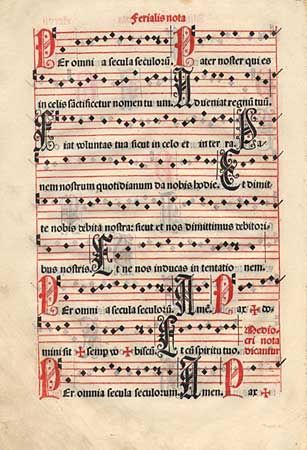 Ferialis nota
Per omnia secula seculorũ. Pater noster qui es
in celis sãctificetur nomen tuum. Adveniat regnũ tuũ.
Fiat voluntas tua sicut in celo et in terra. Pa
nem nostrum quotidianum da nobis hodie. Et dimit
te nobis debita nostra: sicut et nos dimittimus debitori
bus nostris. Et ne nos inducas in tentationem.
Per omnia secula seculorũ. Amen. Pax ✠ do
mini sit ✠ semp vo ✠ biscũ. Et cũ spiritu tuo.
Mediocri nota dicantur
Per omnia secula seculorum. Amen. Pax ✠